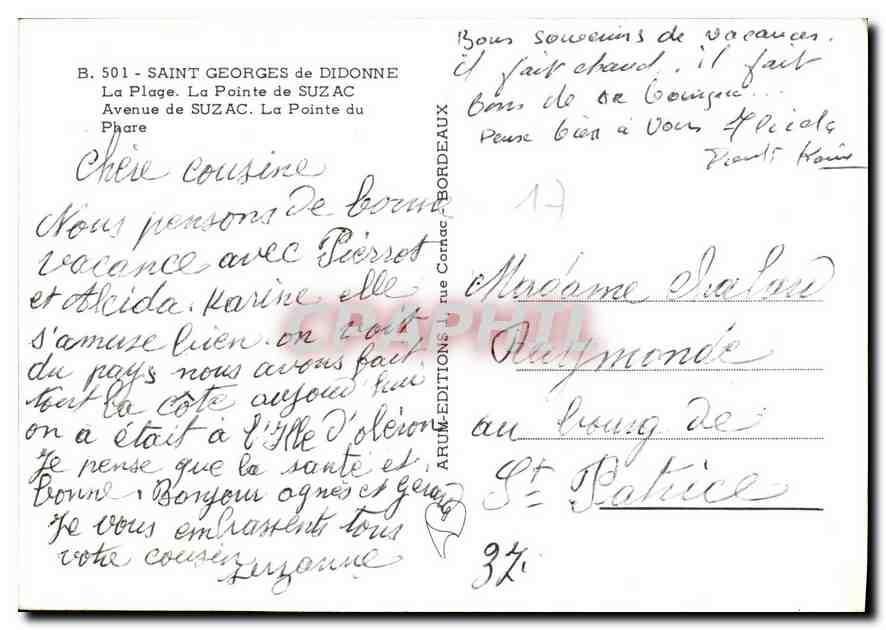 B. 501 - SAINT GEORGES de DIDONNE
La Plage. La Pointe de SUZAC
Avenue de SUZAC. La Pointe du
Phare
Chère cousine
Nous pensons de bonne
vacance avec Pierrot
et Alcida. Karine elle
s'amuse bien on voit
du pays nous avons fait
tout la côte aujourd'hui
on a était à l'Ille d'oléron
Je pense que la santé et
bonne. Bonjour agnès et Gérard
Je vous embrassents tous
votre cousin
Suzanne
ARUM-EDITIONS 1, rue Cornac, BORDEAUX
Bons souvenirs de vacances.
il fait chaud. il fait
bons de se baigner...
Pense bien à Vous Alcida
Pierrot Karine
17
Madame
Raymonde
au bourg de
St Patrice
37.
CPAPHIL